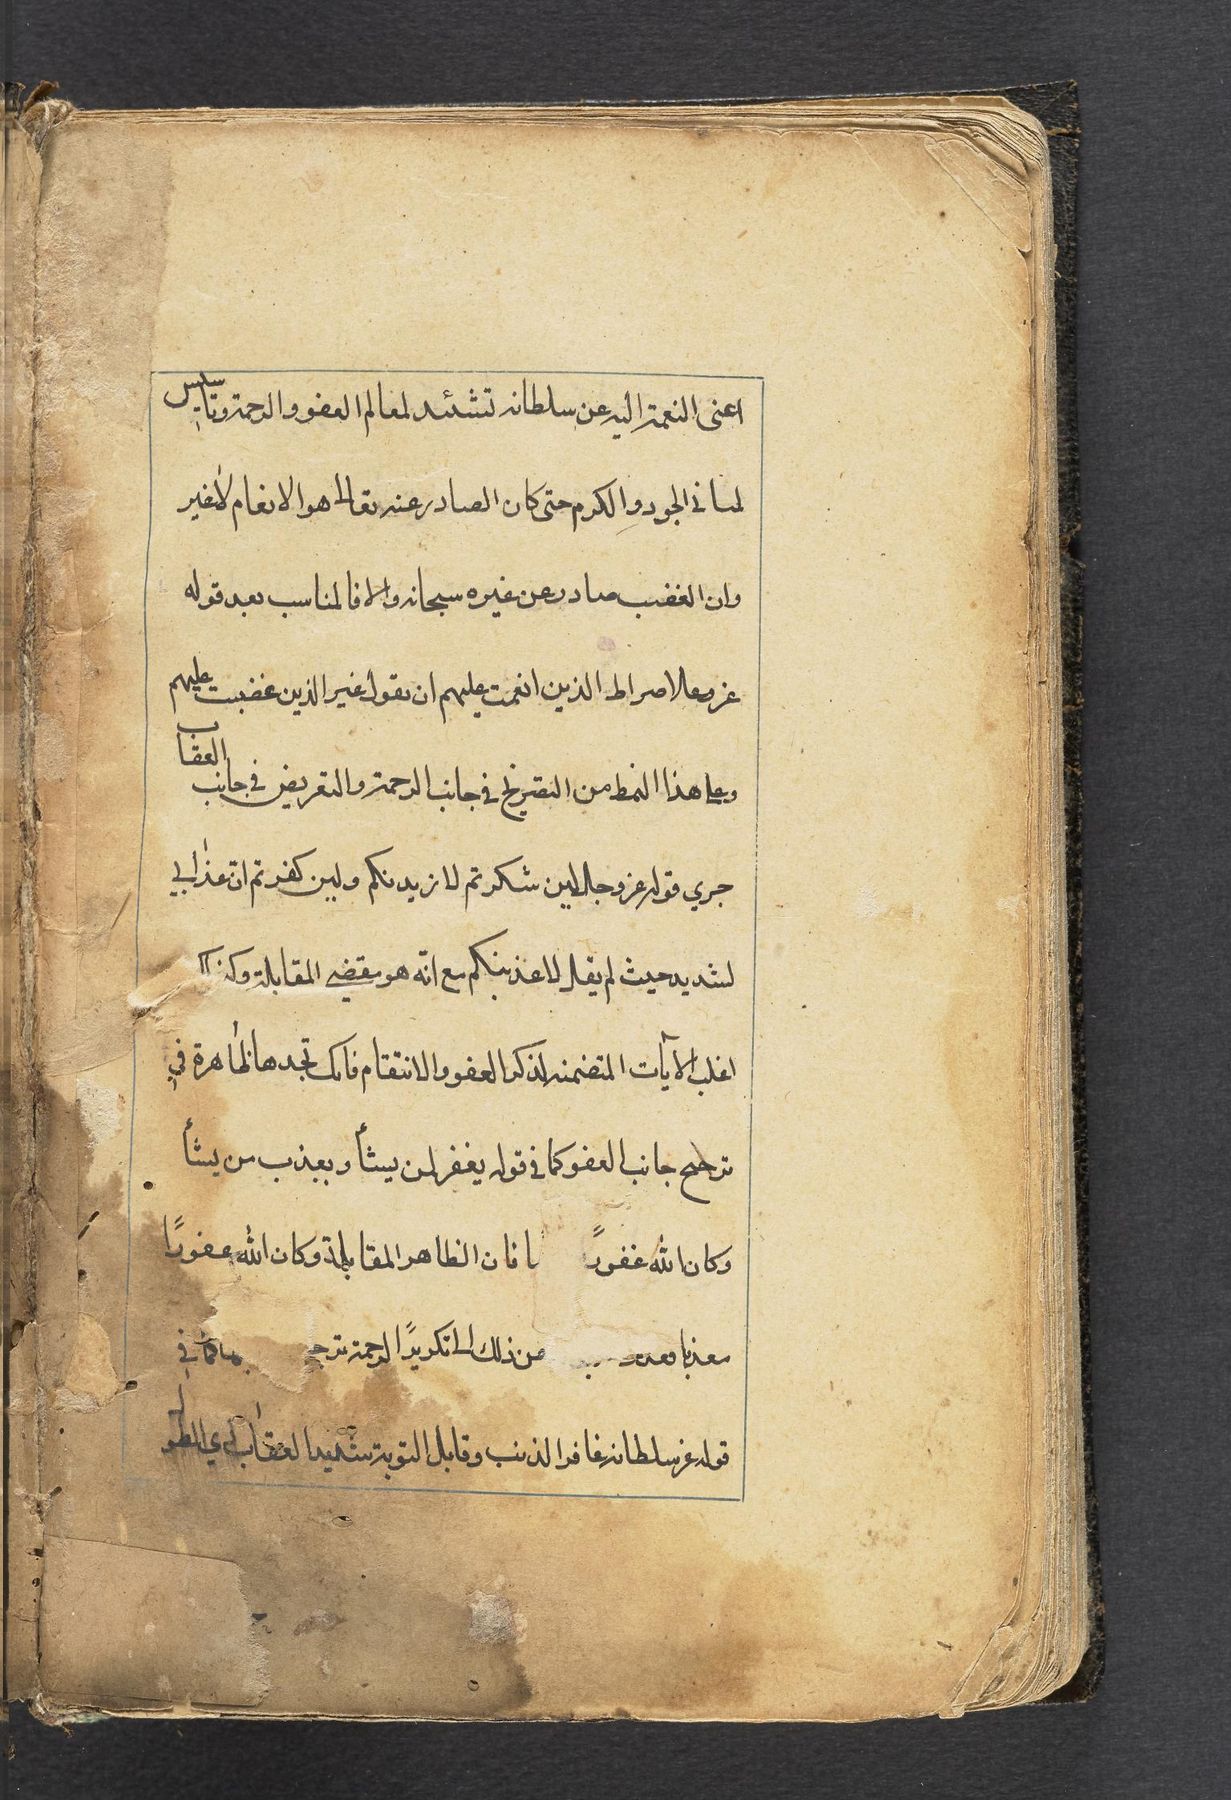 اعنى النعمة اليه عن سلطانه تشئيد لمعالم العفو والرحمة وتأسيس
لمبانى الجود والكرم حتى كان الصادر عنه تعالى هو الانعام لاغير
وان الغضب صادر عن غيره سبحانه والا فالمناسب بعد قوله
عز وعلا صراط الذين انعمت عليهم ان يقول غير الذين غضبت عليهم
وعلى هذا النمط من التصريح في جانب الرحمة والتعريض في جانب العقاب
جري قوله عز وجل لين شكرتم لازيدنكم ولين كفرتم ان عذابي
لشديد حيث لم يقل لاعذبنكم مع انّه هو مقتضي المقابلة وكذلك
اغلب الآيات المتضمنه لذكر العفو والانتقام فانك تجدها ظاهرة في
ترجيح جانب العفو كما في قوله يغفر لمن يشأ ويعذب من يشأ
وكان الله غفورًا فان الظاهر المقابلة وكان الله غفورًا
معذبا من ذلك الى تكرير الرحمة كما في
قوله عز سلطانه غافر الذنب وقابل التوبة شديد العقاب ذي الطول